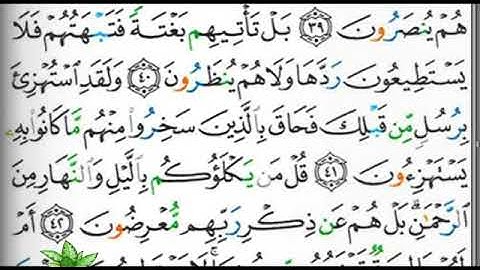 هُمْ يُنصَرُونَ ٣٩ بَلْ تَأْتِيهِم بَغْتَةً فَتَبْهَتُهُمْ فَلَا
يَسْتَطِيعُونَ رَدَّهَا وَلَا هُمْ يُنظَرُونَ ٤٠ وَلَقَدِ اسْتُهْزِئَ
بِرُسُلٍ مِّن قَبْلِكَ فَحَاقَ بِالَّذِينَ سَخِرُوا مِنْهُم مَّا كَانُوا بِهِ
يَسْتَهْزِءُونَ ٤١ قُلْ مَن يَكْلَؤُكُم بِاللَّيْلِ وَالنَّهَارِ مِنَ
الرَّحْمَٰنِ بَلْ هُمْ عَن ذِكْرِ رَبِّهِم مُّعْرِضُونَ ٤٢ أَمْ